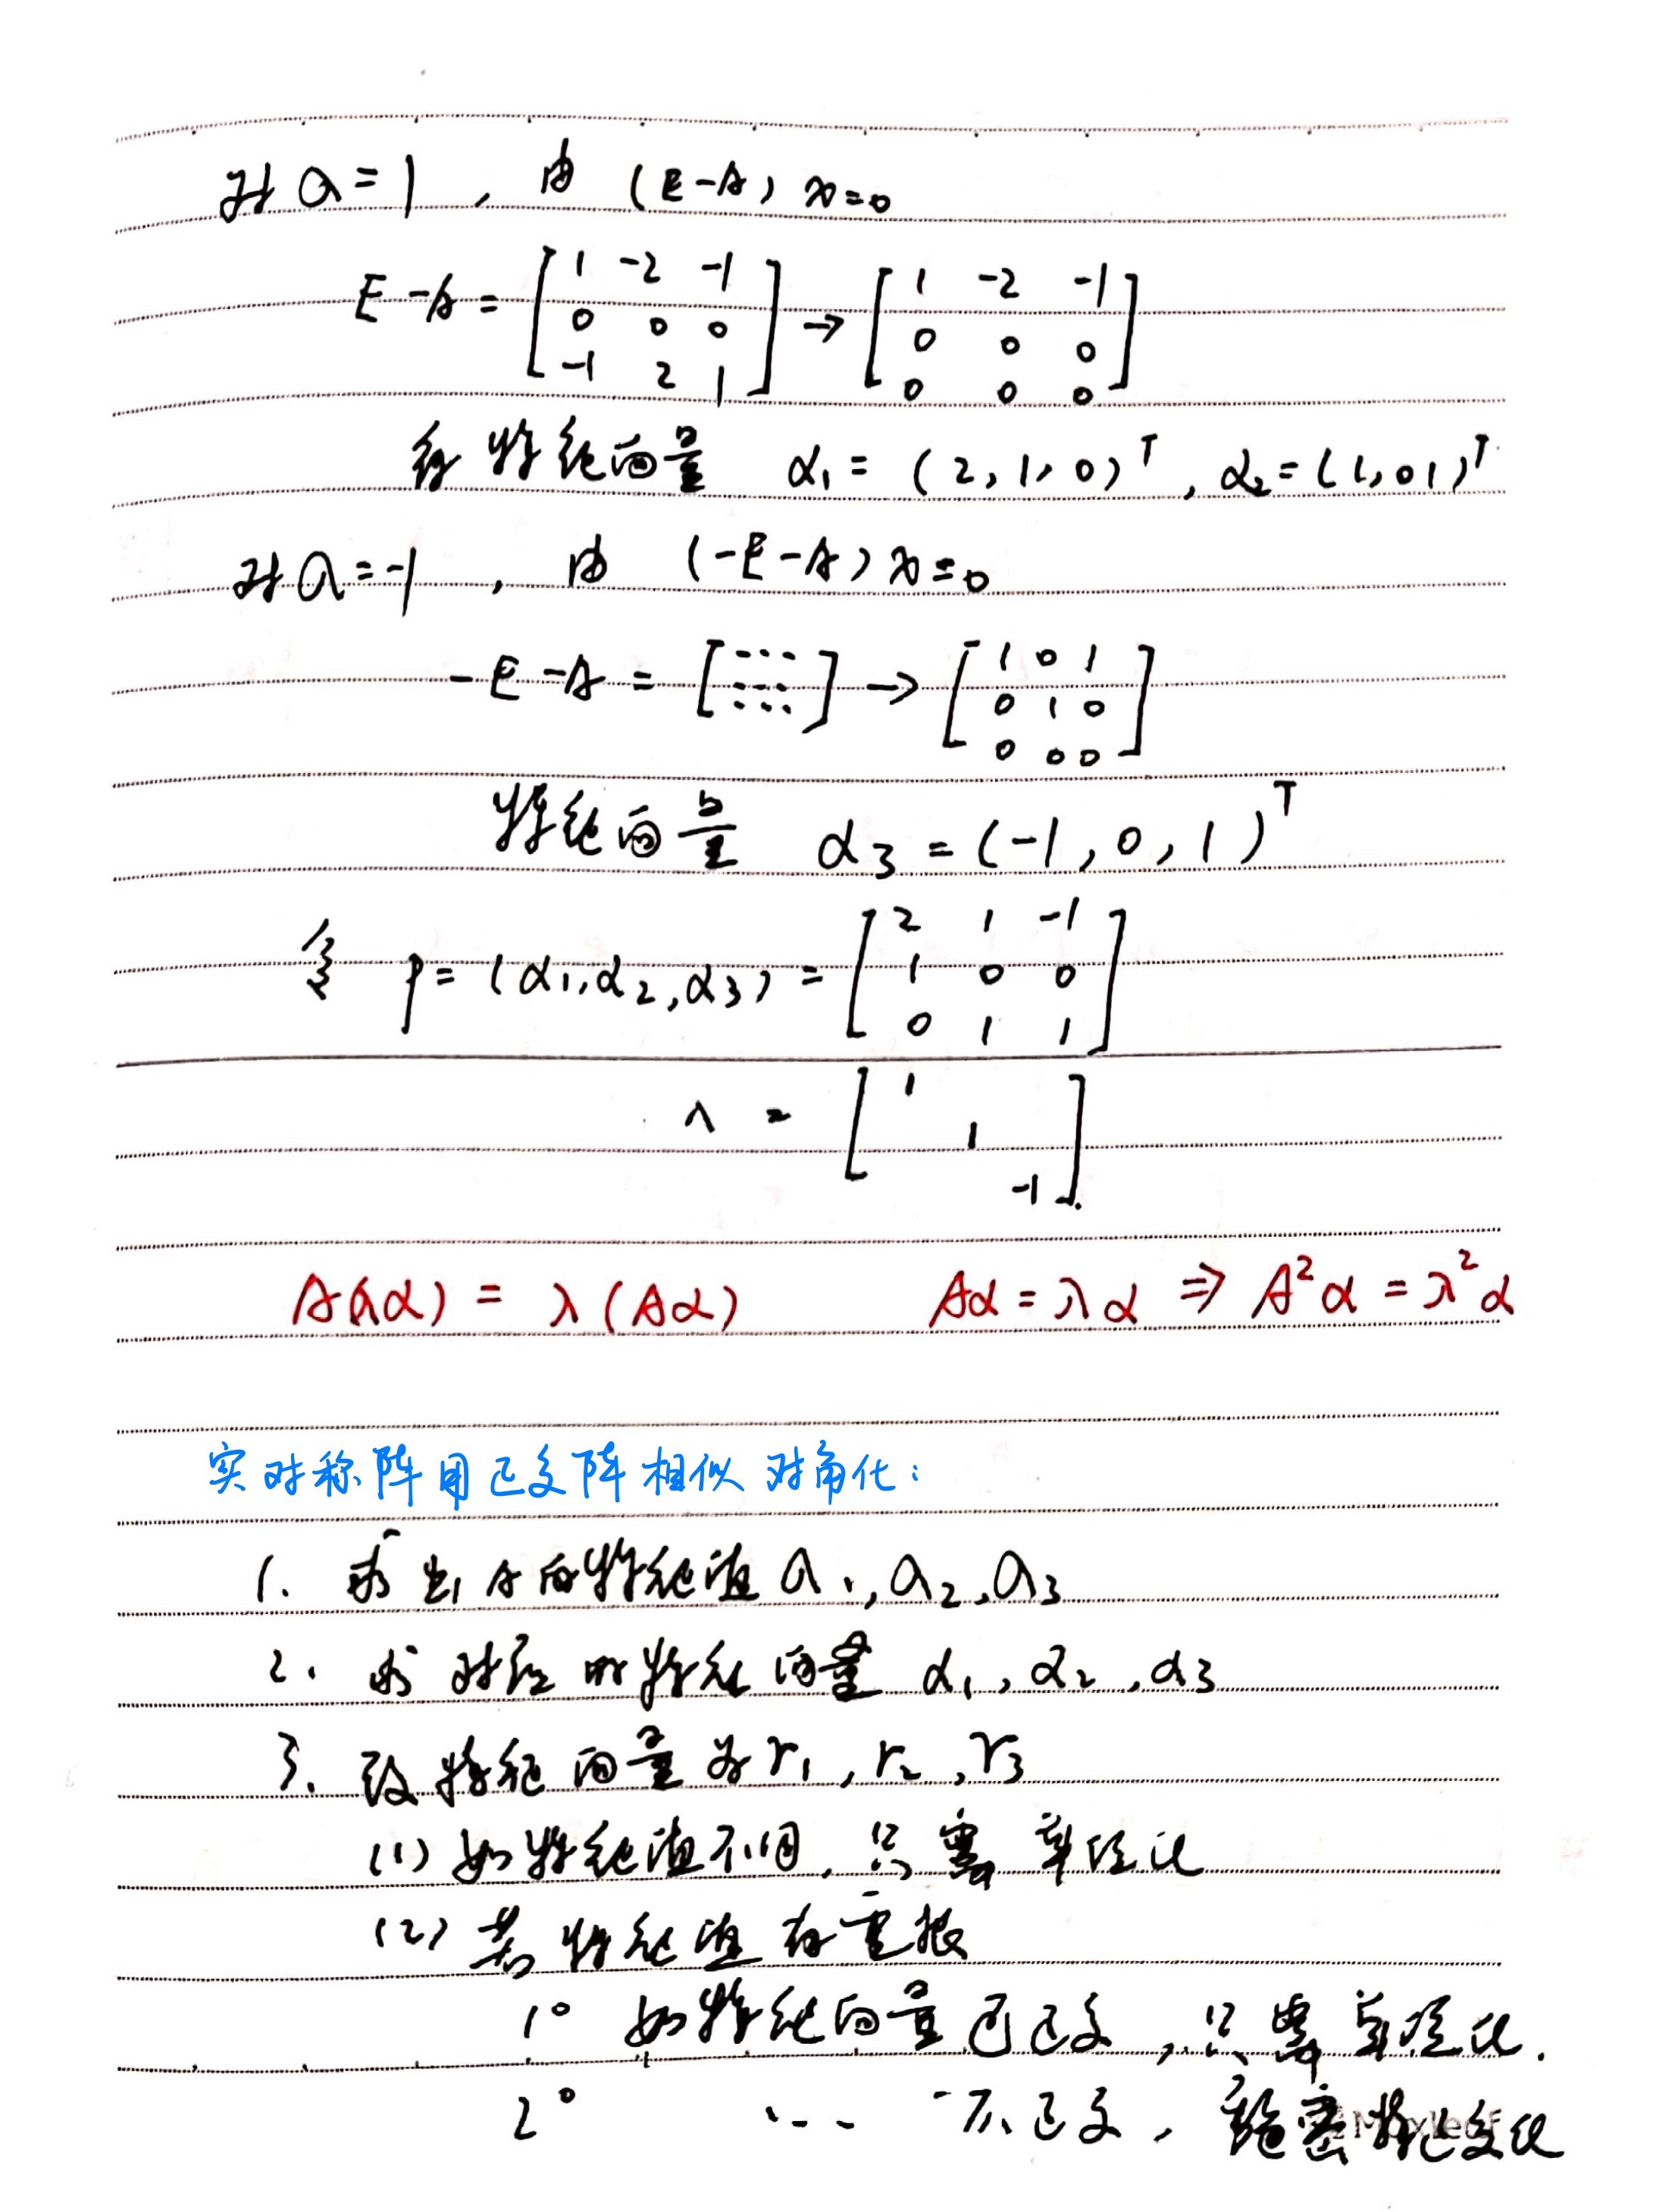 对λ=1, 由 (E-A)x=0
E-A = [1 -2 -1; 0 0 0; -1 2 1] → [1 -2 -1; 0 0 0; 0 0 0]
有特征向量 α₁=(2,1,0)ᵀ, α₂=(1,0 1)ᵀ
对λ=-1, 由 (-E-A)x=0
-E-A = [⋯] → [1 0 1; 0 1 0; 0 0 0]
特征向量 α₃=(-1,0,1)ᵀ
令 P=(α₁,α₂,α₃) = [2 1 -1; 1 0 0; 0 1 1]
Λ = [1 1 -1]
A(λα) = λ(Aα) Aα=λα ⇒ A²α=λ²α
实对称阵用正交阵相似对角化:
1. 求出A的特征值λ₁,λ₂,λ₃
2. 求对应的特征向量 α₁,α₂,α₃
3. 改特征向量为γ₁,γ₂,γ₃
(1) 如特征值不同, 只需单位化
(2) 若特征值有重根
1° 如特征向量已正交, 只需单位化.
2° ... 不正交, 施密特正交化